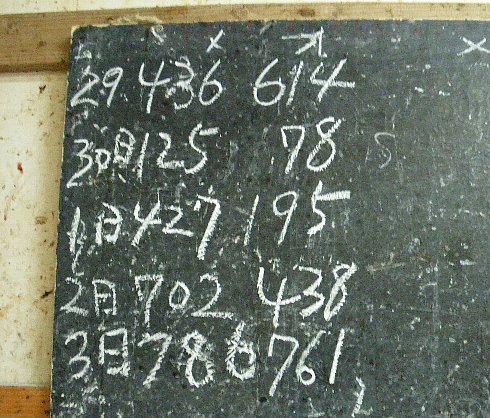 29. 436 614
30日 125 78
1日 427 195
2日 702 438
3日 786 761